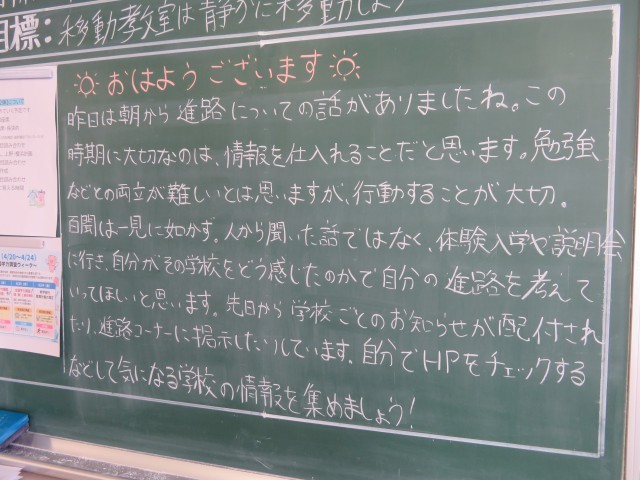 目標: 移動教室は静かに移動しよう
おはようございます
昨日は朝から進路についての話がありましたね。この
時期に大切なのは、情報を仕入れることだと思います。勉強
などとの両立が難しいとは思いますが、行動することが大切。
百聞は一見に如かず。人から聞いた話ではなく、体験入学や説明会
に行き、自分がその学校をどう感じたのかで自分の進路を考えて
いってほしいと思います。先日から学校ごとのお知らせが配付され
たり、進路コーナーに掲示したりしています。自分でHPをチェックする
などして気になる学校の情報を集めましょう!
(4/20~4/24)